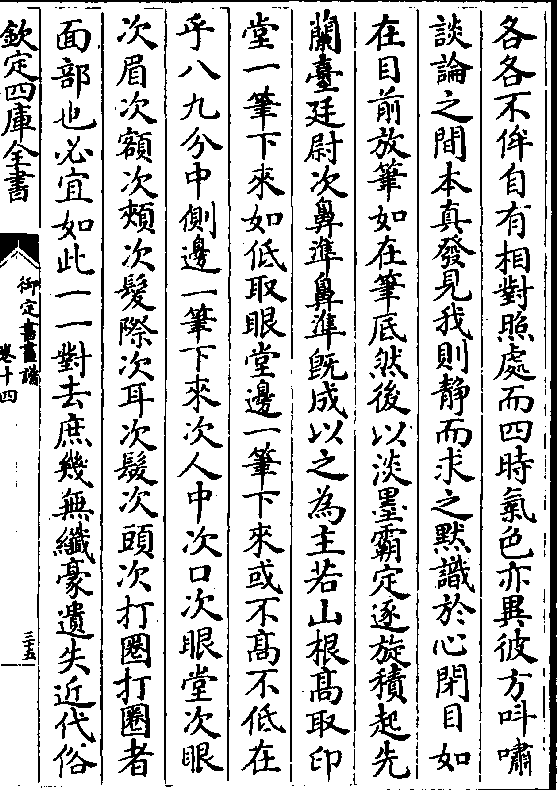 各各不侔自有相對照處而四時氣色亦異彼方呌嘯
談論之間本真發見我則静而求之黙識於心閉目如
在目前放筆如在筆底然後以淡墨霸定逐旋積起先
蘭臺廷尉次鼻凖鼻凖既成以之為主若山根髙取印
堂一筆下來如低取眼堂邊一筆下來或不髙不低在
乎八九分中側邊一筆下來次人中次口次眼堂次眼
次眉次額次頰次髮際次耳次髮次頭次打圏打圏者
面部也必宜如此一一對去庶幾無纖豪遺失近代俗
欽定四庫全書
御定書畫譜
卷十四
三十五